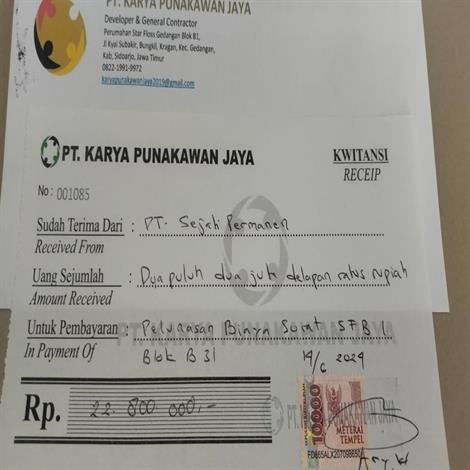 PT. KARYA PUNAKAWAN JAYA
Developer & General Contractor
Perumahan Star Floss Gedangan Blok B1,
Jl Kyai Subakir, Bungkil, Kragan, Kec. Gedangan,
Kab, Sidoarjo, Jawa Timur
0822-1991-9972
karyapunakawanjaya2019@gmail.com
PT. KARYA PUNAKAWAN JAYA
KWITANSI
RECEIP
No : 001085
Sudah Terima Dari : PT. Sejati Permanen
Received From
Uang Sejumlah : Dua puluh dua juta delapan ratus rupiah
Amount Received
Untuk Pembayaran: Pelunasan Biaya Surat
PT. KARYA PUNAKAWAN JAYA
In Payment Of Blok B 31
19/6 2024
Rp. 22.800 000,-
PT. KARYA PUNAKAWAN JAYA
10000
METERAI
TEMPEL